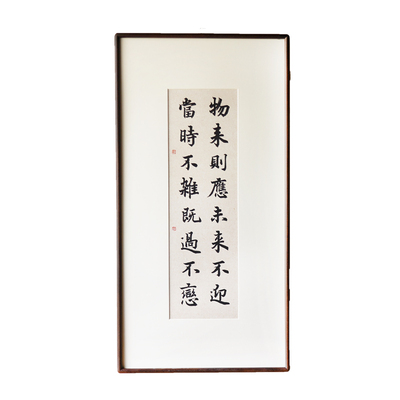 物来則應未来不迎
當時不雜既過不戀